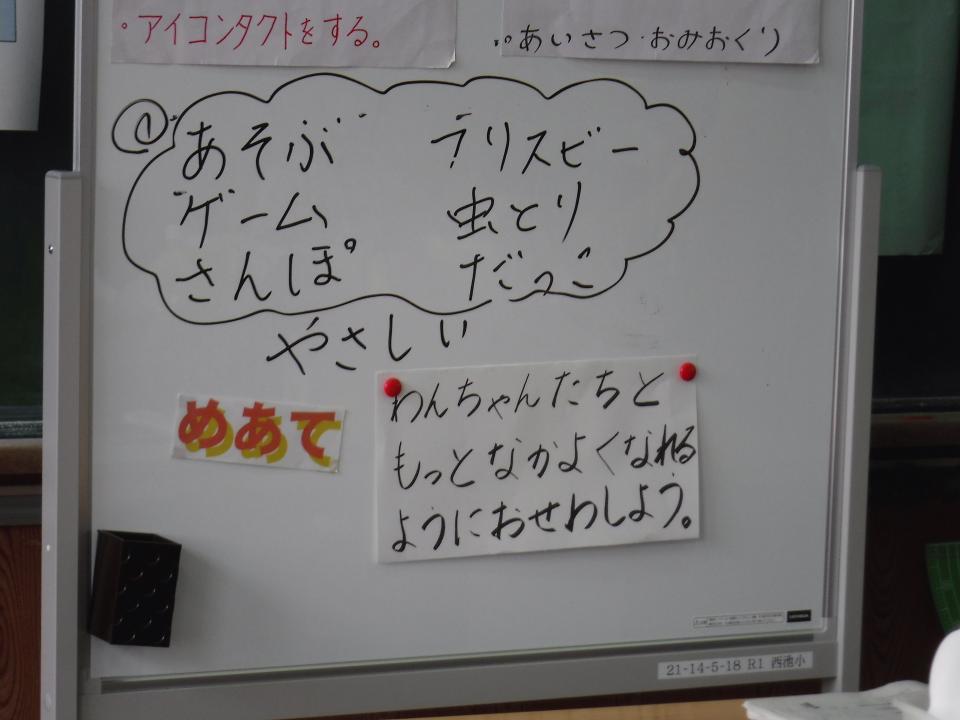 ・アイコンタクトをする。
・あいさつ・おみおくり
①
あそぶ フリスビー
ゲーム 虫とり
さんぽ だっこ
やさしい
めあて
わんちゃんたちと
もっとなかよくなれる
ようにおせわしよう。
21-14-5-18 R1 西池小